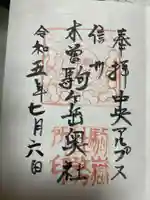 奉拝
中央アルプス
信州
木曽駒ヶ岳奥社
令和五年七月六日